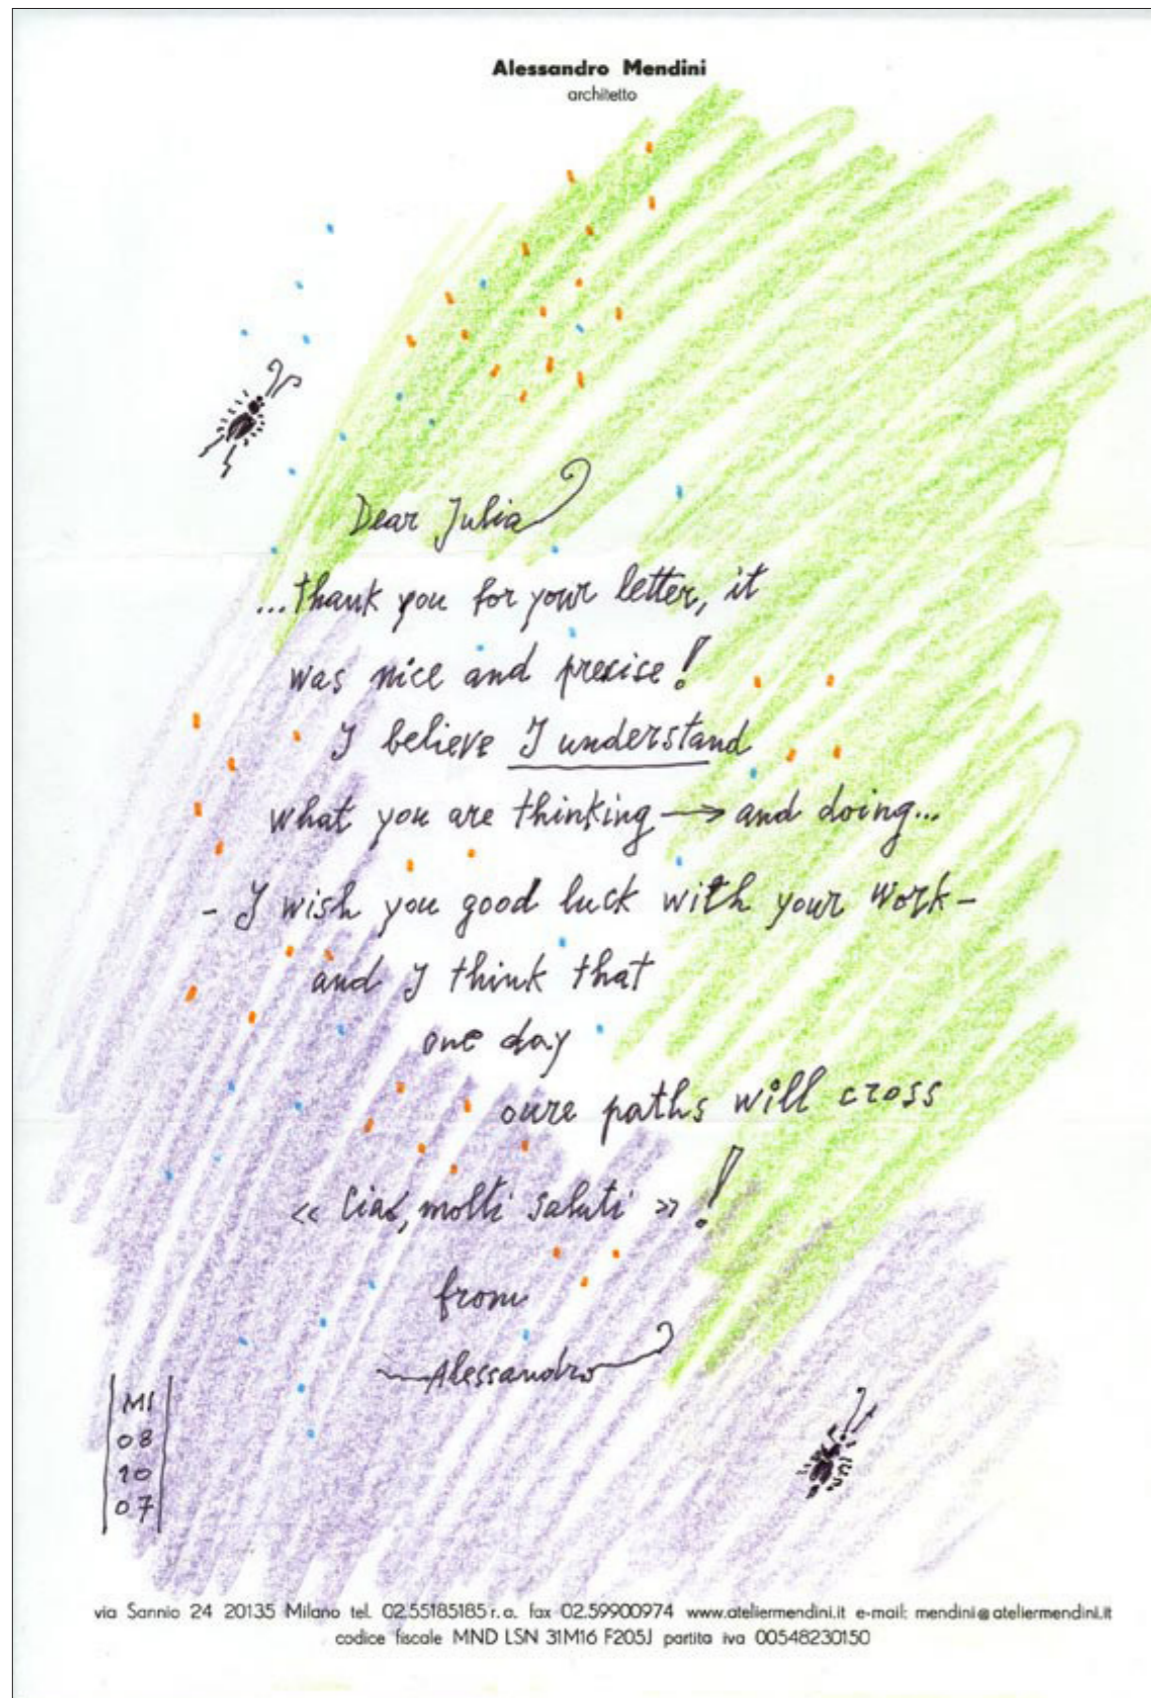 Alessandro Mendini
architetto
Dear Julia
...thank you for your letter, it
was nice and precise!
I believe I understand
what you are thinking → and doing...
- I wish you good luck with your work -
and I think that
one day
oure paths will cross
« Ciao, molti saluti » !
from
Alessandro
MI
08
10
07
via Sannio 24 20135 Milano tel. 02.55185185 r.a. fax 02.59900974 www.ateliermendini.it e-mail: mendini@ateliermendini.it
codice fiscale MND LSN 31M16 F205J partita iva 00548230150